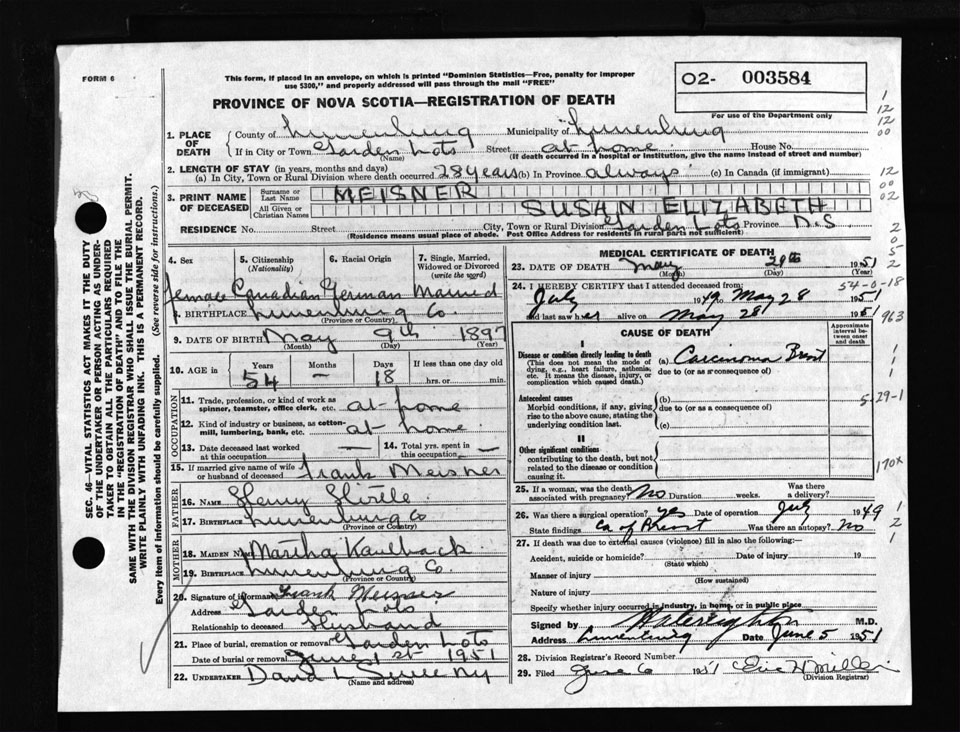 FORM 6
This form, if placed in an envelope, on which is printed "Dominion Statistics—Free, penalty for improper
use $300," and properly addressed will pass through the mail "FREE"
O2- 003584
For use of the Department only
PROVINCE OF NOVA SCOTIA—REGISTRATION OF DEATH
1. PLACE OF DEATH
County of Lunenburg Municipality of Lunenburg
If in City or Town Garden Lots Street at home House No.
(Name) (If death occurred in a hospital or institution, give the name instead of street and number)
2. LENGTH OF STAY (in years, months and days)
(a) In City, Town or Rural Division where death occurred 28 years (b) In Province always (c) In Canada (if immigrant)
3. PRINT NAME OF DECEASED
Surname or Last Name MEISNER
All Given or Christian Names SUSAN ELIZABETH
RESIDENCE No. Street City, Town or Rural Division Garden Lots Province N.S
(Residence means usual place of abode. Post Office Address for residents in rural parts not sufficient)
4. Sex 5. Citizenship (Nationality) 6. Racial Origin 7. Single, Married, Widowed or Divorced (write the word)
female Canadian German Married
8. BIRTHPLACE Lunenburg Co.
(Province or Country)
9. DATE OF BIRTH May 9th 1897
(Month) (Day) (Year)
10. AGE in Years Months Days If less than one day old
54 — 18 hrs. or min.
OCCUPATION
11. Trade, profession, or kind of work as spinner, teamster, office clerk, etc. at home
12. Kind of industry or business, as cotton-mill, lumbering, bank, etc. at home
13. Date deceased last worked at this occupation — 14. Total yrs. spent in this occupation —
15. If married give name of wife or husband of deceased Frank Meisner
FATHER
16. NAME Henry
17. BIRTHPLACE Lunenburg Co
(Province or Country)
MOTHER
18. MAIDEN NAME Martha Kaulback
19. BIRTHPLACE Lunenburg Co.
(Province or Country)
20. Signature of informant Frank Meisner
Address Garden Lots
Relationship to deceased Husband
21. Place of burial, cremation or removal Garden Lots
Date of burial or removal June 1st 1951
22. UNDERTAKER David L
(Name and address)
MEDICAL CERTIFICATE OF DEATH
23. DATE OF DEATH May 29th 1951
(Month) (Day) (Year)
54-0-18
24. I HEREBY CERTIFY that I attended deceased from:
July 1949 to May 28 1951
and last saw her alive on May 28 1951
CAUSE OF DEATH
Approximate interval between onset and death
I
Disease or condition directly leading to death
(This does not mean the mode of dying, e.g., heart failure, asthenia, etc. It means the disease, injury, or complication which caused death.)
(a) Carcinoma Breast
due to (or as a consequence of)
Antecedent causes
Morbid conditions, if any, giving rise to the above cause, stating the underlying condition last.
(b)
due to (or as a consequence of)
(c)
II
Other significant conditions
contributing to the death, but not related to the disease or condition causing it.
25. If a woman, was the death associated with pregnancy? No Duration weeks. Was there a delivery?
26. Was there a surgical operation? yes Date of operation July 1949
State findings Ca of Breast Was there an autopsy? No
27. If death was due to external causes (violence) fill in also the following:
Accident, suicide or homicide? Date of injury 19
(State which)
Manner of injury
(How sustained)
Nature of injury
Specify whether injury occurred in industry, in home, or in public place
Signed by M.D.
Address Lunenburg Date June 5 1951
28. Division Registrar's Record Number
29. Filed June 6 1951 Eric W Miller
(Division Registrar)
1
12
12
00
12
00
02
2
0
5
2
963
1
1
1
5-29-1
170x
1
2
1
SEC. 46—VITAL STATISTICS ACT MAKES IT THE DUTY
OF THE UNDERTAKER OR PERSON ACTING AS UNDER-
TAKER TO OBTAIN ALL THE PARTICULARS REQUIRED
IN THE "REGISTRATION OF DEATH" AND TO FILE THE
SAME WITH THE DIVISION REGISTRAR WHO SHALL ISSUE THE BURIAL PERMIT.
WRITE PLAINLY WITH UNFADING INK. THIS IS A PERMANENT RECORD.
Every item of information should be carefully supplied. (See reverse side for instructions.)